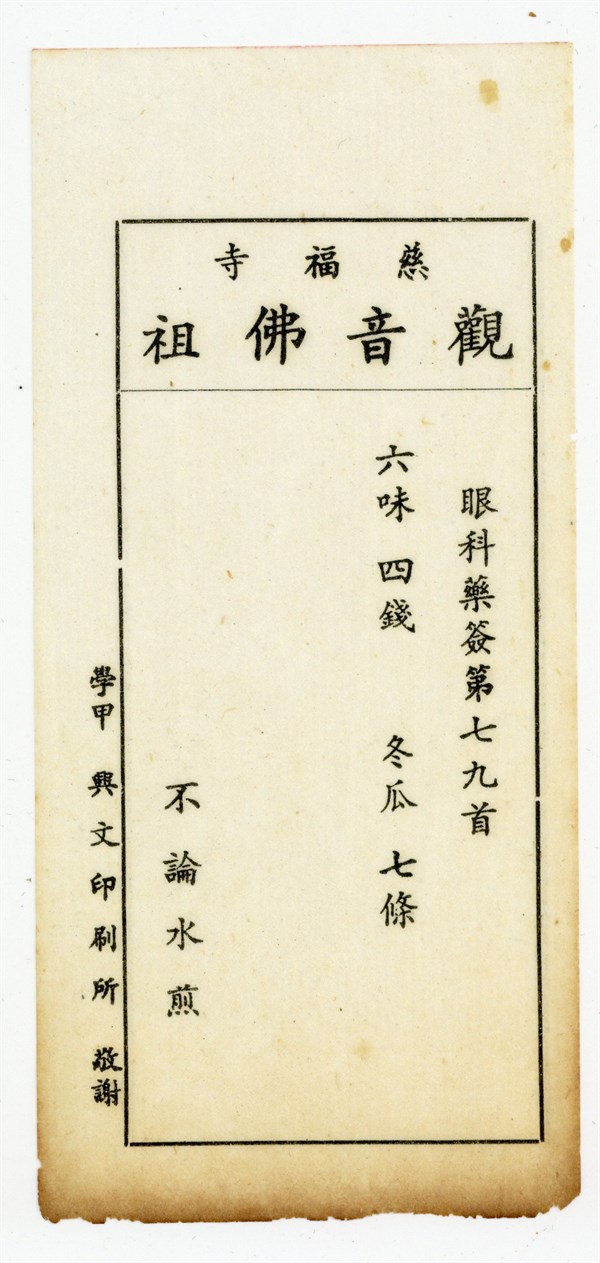 慈福寺
觀音佛祖
眼科藥簽第七九首
六味 四錢 冬瓜 七條
不論水煎
學甲 興文印刷所 敬謝